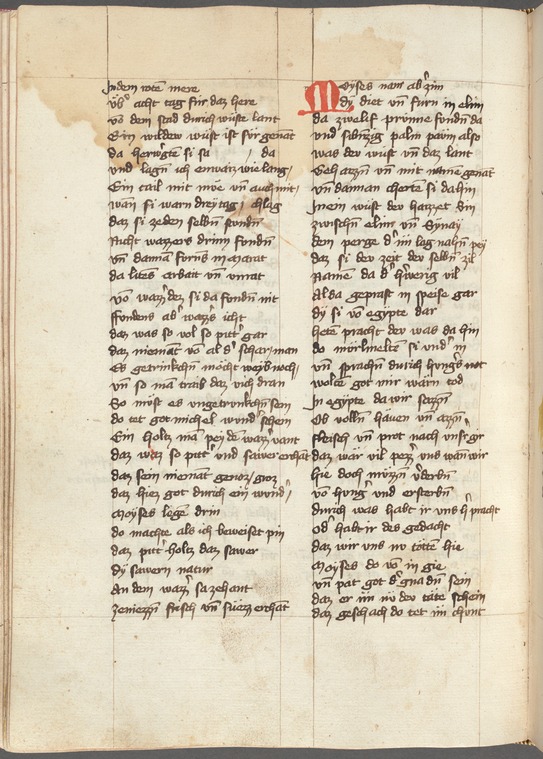 Indem roten mere
vb̕ acht tag fur daz here
vō dem send durich wuste lant
Ein wildew wüst ist sūr genāt
da herbgten si sa / da
und lagn̄ ich enwaiz wie lang
Ein tail mit mve vn̄ auch mit
wan si warn drey tag / chlag
daz si zeden selbn̄ stundn̄
Nicht wazzers drinn fondn̄
vn̄ daman fürns in marat
da lites arbait vn̄ vnrat
vō waz̕ dez si da fondn̄ nit
ffondens ab̕ waz̕s icht
daz was so vol so pitt̕ gar
daz niemāt vō al d̕ schar / man
Es getrinkchn̄ möcht weyb noch
vn̄ so mā traib daz vich dran
So müst es ungetrunkchn̄ sein
do tet got michel wund̕ schein
Ein holtz mā pey de waz̕ vant
daz waz so pitt̕ und sawer erchāt
daz sein niemāt genoz / groz
daz hiez got durich ein wund̕
Moyses legen drin
do machte als ich beweiset pin
daz pitt̕ holtz daz sawer
dy sawern natur
An dem waz̕ sa zehant
zeniezzn̄ frisch vn̄ suezz erchāt
Moyses nam ab̕ sin
dy diet vn̄ furn in elim
da zwelif prunne fondn̄ da
und sibnzig palm paim also
was der wüst vn̄ daz lant
Gehazzn̄ vn̄ mit name genāt
vn̄ dannan cherte si dahin
In ein wüst der hazzet Sin
zwischn̄ elim vn̄ Synay
dem perge d̕ in lag nahn̄ pey
daz si der zeit der selbn̄ zil
Namē da d̕ h̕werig vil
Alda geprast in speise gar
dy si vō egypte dar
hetē pracht der was da hin
do mürlmeltē si und̕ in
vn̄ sprachn̄ durich hung̕s not
wolde got wir warn tod
in egypte da wir sazzn̄
Ob volln̄ häven vn̄ azzn̄
fleisch vn̄ prot nach uns̕ gir
daz wār vil pezz̕ und wan wir
hie doch müzzn̄ v̕derbn̄
vō hung̕ und ersterbn̄
durich was habt ir vns h̕ pracht
od̕ habt ir des gedacht
daz wir vns no tötē hie
Moyses do vō in gie
vn̄ pat got d̕ gnadn̄ sein
daz er in nv der täte schein
daz geschach do tet in chunt